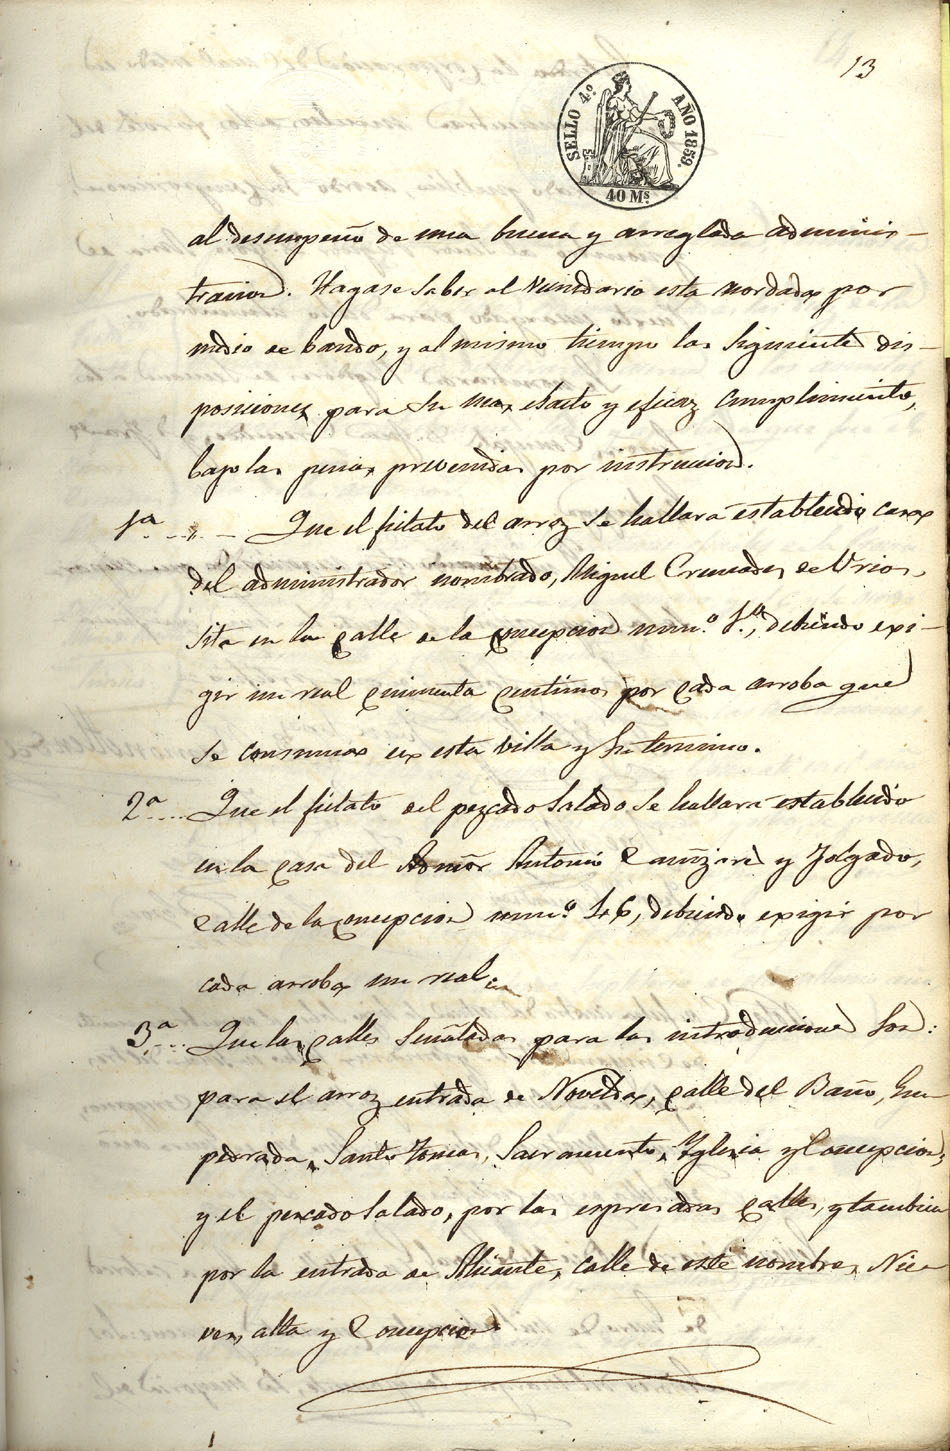 13
SELLO 4.º AÑO 1859.
40 Ms.
al desempeño de una buena y arreglada adminis-
tracion. Hagase saber al vecindario esta acordada por
medio de bando, y al mismo tiempo las siguientes dis-
posiciones para su mas esacto y eficaz cumplimiento,
bajo las penas prevenidas por instruccion.
1ª Que el fielato del arroz se hallará establecido casa
del administrador nombrado, Miguel Cremades de Urios,
sita en la calle de la Concepcion num.º 1.º, debiendo exi-
gir un real cincuenta centimos por cada arroba que
se consuma en esta villa y su termino.
2ª Que el fielato del pezcado salado se hallará establecido
en la casa del Admor Antonio Cañizares y Jolgado,
calle de la Concepcion num.º 16, debiendo exigir por
cada arroba un real
3ª Que las calles señaladas para las introducciones son:
para el arroz entrada de Novelda, calle del Baño, Em-
pedrada, Santo Tomas, Sacramento, Yglesia y Concepcion,
y el pescado salado, por las espresadas calles, y tambien
por la entrada de Alicante, calle de este nombre, Nie-
ves, alta y Concepcion.